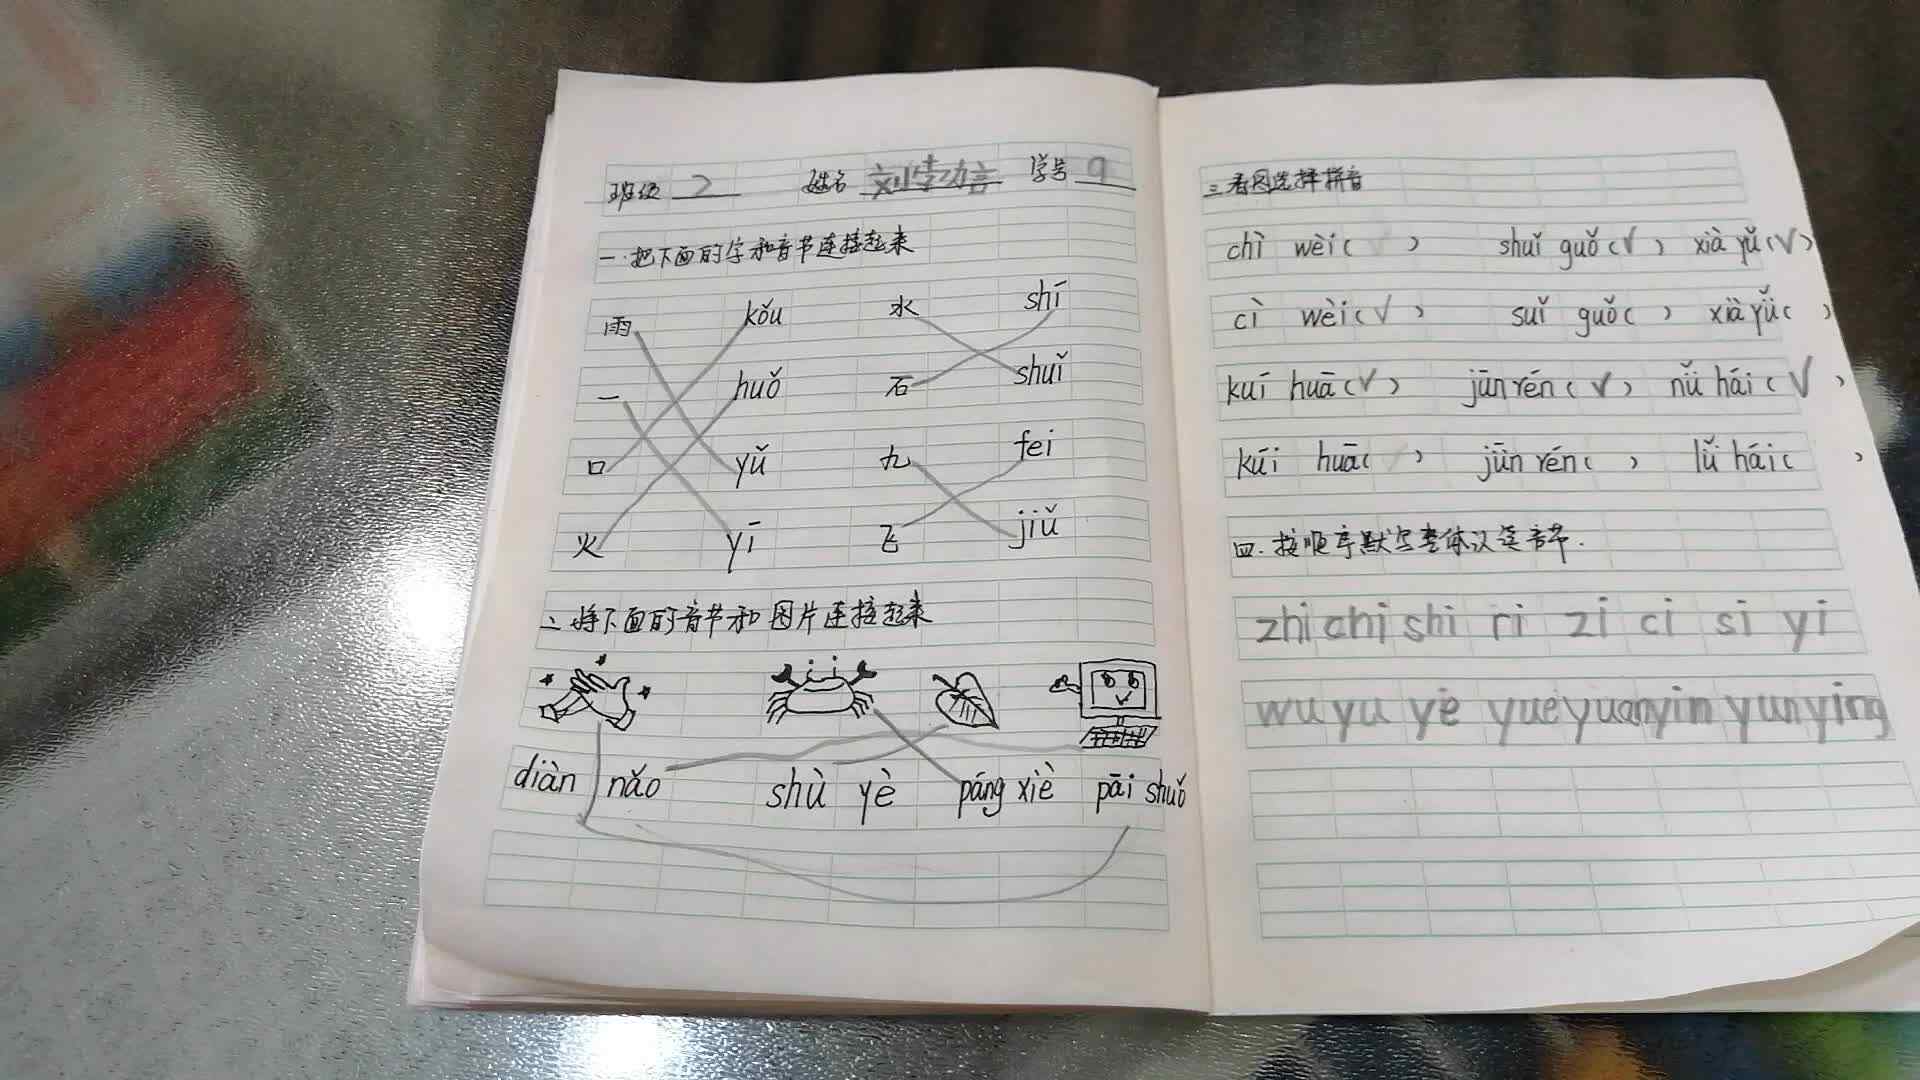 班级 2 姓名 学号 9
一.把下面的字和音节连接起来
雨 kǒu 水 shí
一 huǒ 石 shuǐ
口 yǔ 九 fēi
火 yī 飞 jiǔ
二、将下面的音节和图片连接起来
diàn nǎo shù yè páng xiè pāi shuǒ
三.看图选择拼音
chì wèi( ) shuǐ guǒ(√) xià yǔ(√)
cì wèi(√) suǐ guǒ( ) xià yǚ( )
kuī huā(√) jūn rén(√) nǚ hái(√)
kúi huā( ) jǖn rén( ) lǚ hái( )
四.按顺序默写整体认读音节.
zhi chi shi ri zi ci si yi
wu yu ye yue yuan yin yun ying